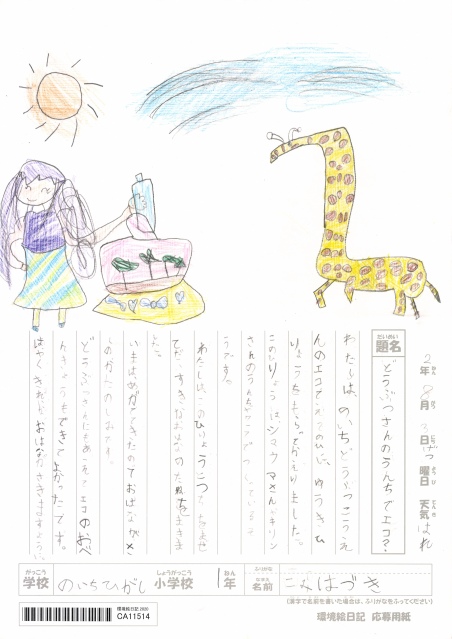 2年8月3日げつ曜日 天気はれ
だいめい
題名 どうぶつさんのうんちでエコ?
わたしは、のいちどうぶつこうえ
んのエコ
りょうをもらってかえりました。
このひりょうはシマウマさんやキリン
さんのうんち
うです。
わたしは、このひりょうをつ
て、すきなおはなのたねをまきま
した。
いまはめがでてきたのでおはながさ
くのがたのしみです。
どうぶつさんにもあえてエコのおべ
んきょうもできてよかったです。
はやくきれいなおはながさきますように。
がっこう しょうがっこう ねん ふりがな
学校 のいちひがし小学校 1年 名前 はづき
(漢字で名前を書いた場合は、ふりがなをふってください)
環境絵日記 2020
CA11514
環境絵日記 応募用紙